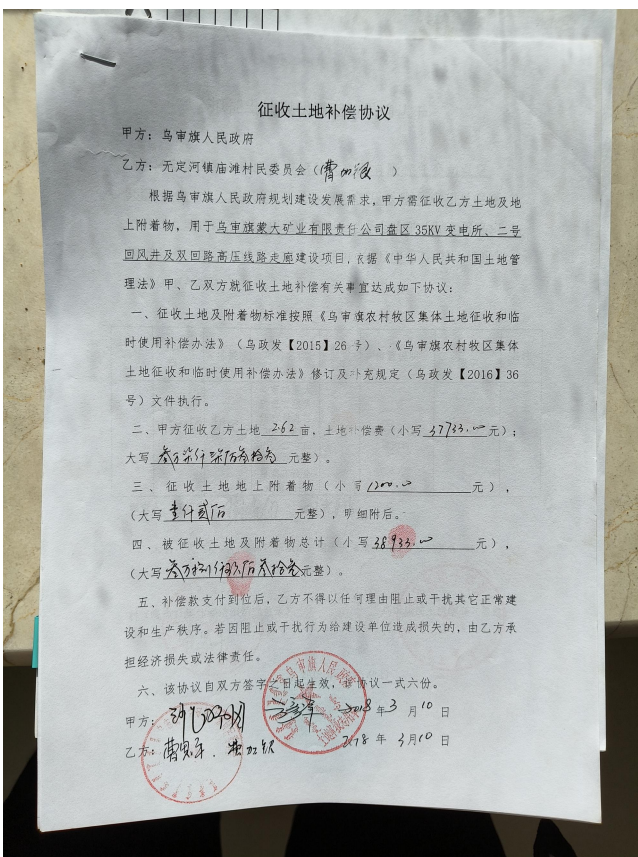 征收土地补偿协议
甲方：乌审旗人民政府
乙方：无定河镇庙滩村民委员会（曹加银 ）
根据乌审旗人民政府规划建设发展需求，甲方需征收乙方土地及地
上附着物，用于乌审旗蒙大矿业有限责任公司盘区35KV变电所、二号
回风井及双回路高压线路走廊建设项目，依据《中华人民共和国土地管
理法》甲、乙双方就征收土地补偿有关事宜达成如下协议：
一、征收土地及附着物标准按照《乌审旗农村牧区集体土地征收和临
时使用补偿办法》（乌政发【2015】26号）、《乌审旗农村牧区集体
土地征收和临时使用补偿办法》修订及补充规定（乌政发【2016】36
号）文件执行。
二、甲方征收乙方土地 2.62 亩，土地补偿费（小写 37733.00 元）；
大写 叁万柒仟柒佰叁拾叁 元整）。
三、征收土地地上附着物（小写 1200.00 元），
（大写 壹仟贰佰 元整），明细附后。
四、被征收土地及附着物总计（小写 38933.00 元），
（大写 叁万捌仟玖佰叁拾叁元整）。
五、补偿款支付到位后，乙方不得以任何理由阻止或干扰其它正常建
设和生产秩序。若因阻止或干扰行为给建设单位造成损失的，由乙方承
担经济损失或法律责任。
六、该协议自双方签字之日起生效，该协议一式六份。
甲方： 2018 年 3 月 10 日
乙方： 曹 2018 年 3 月 10 日
乌审旗人民政府